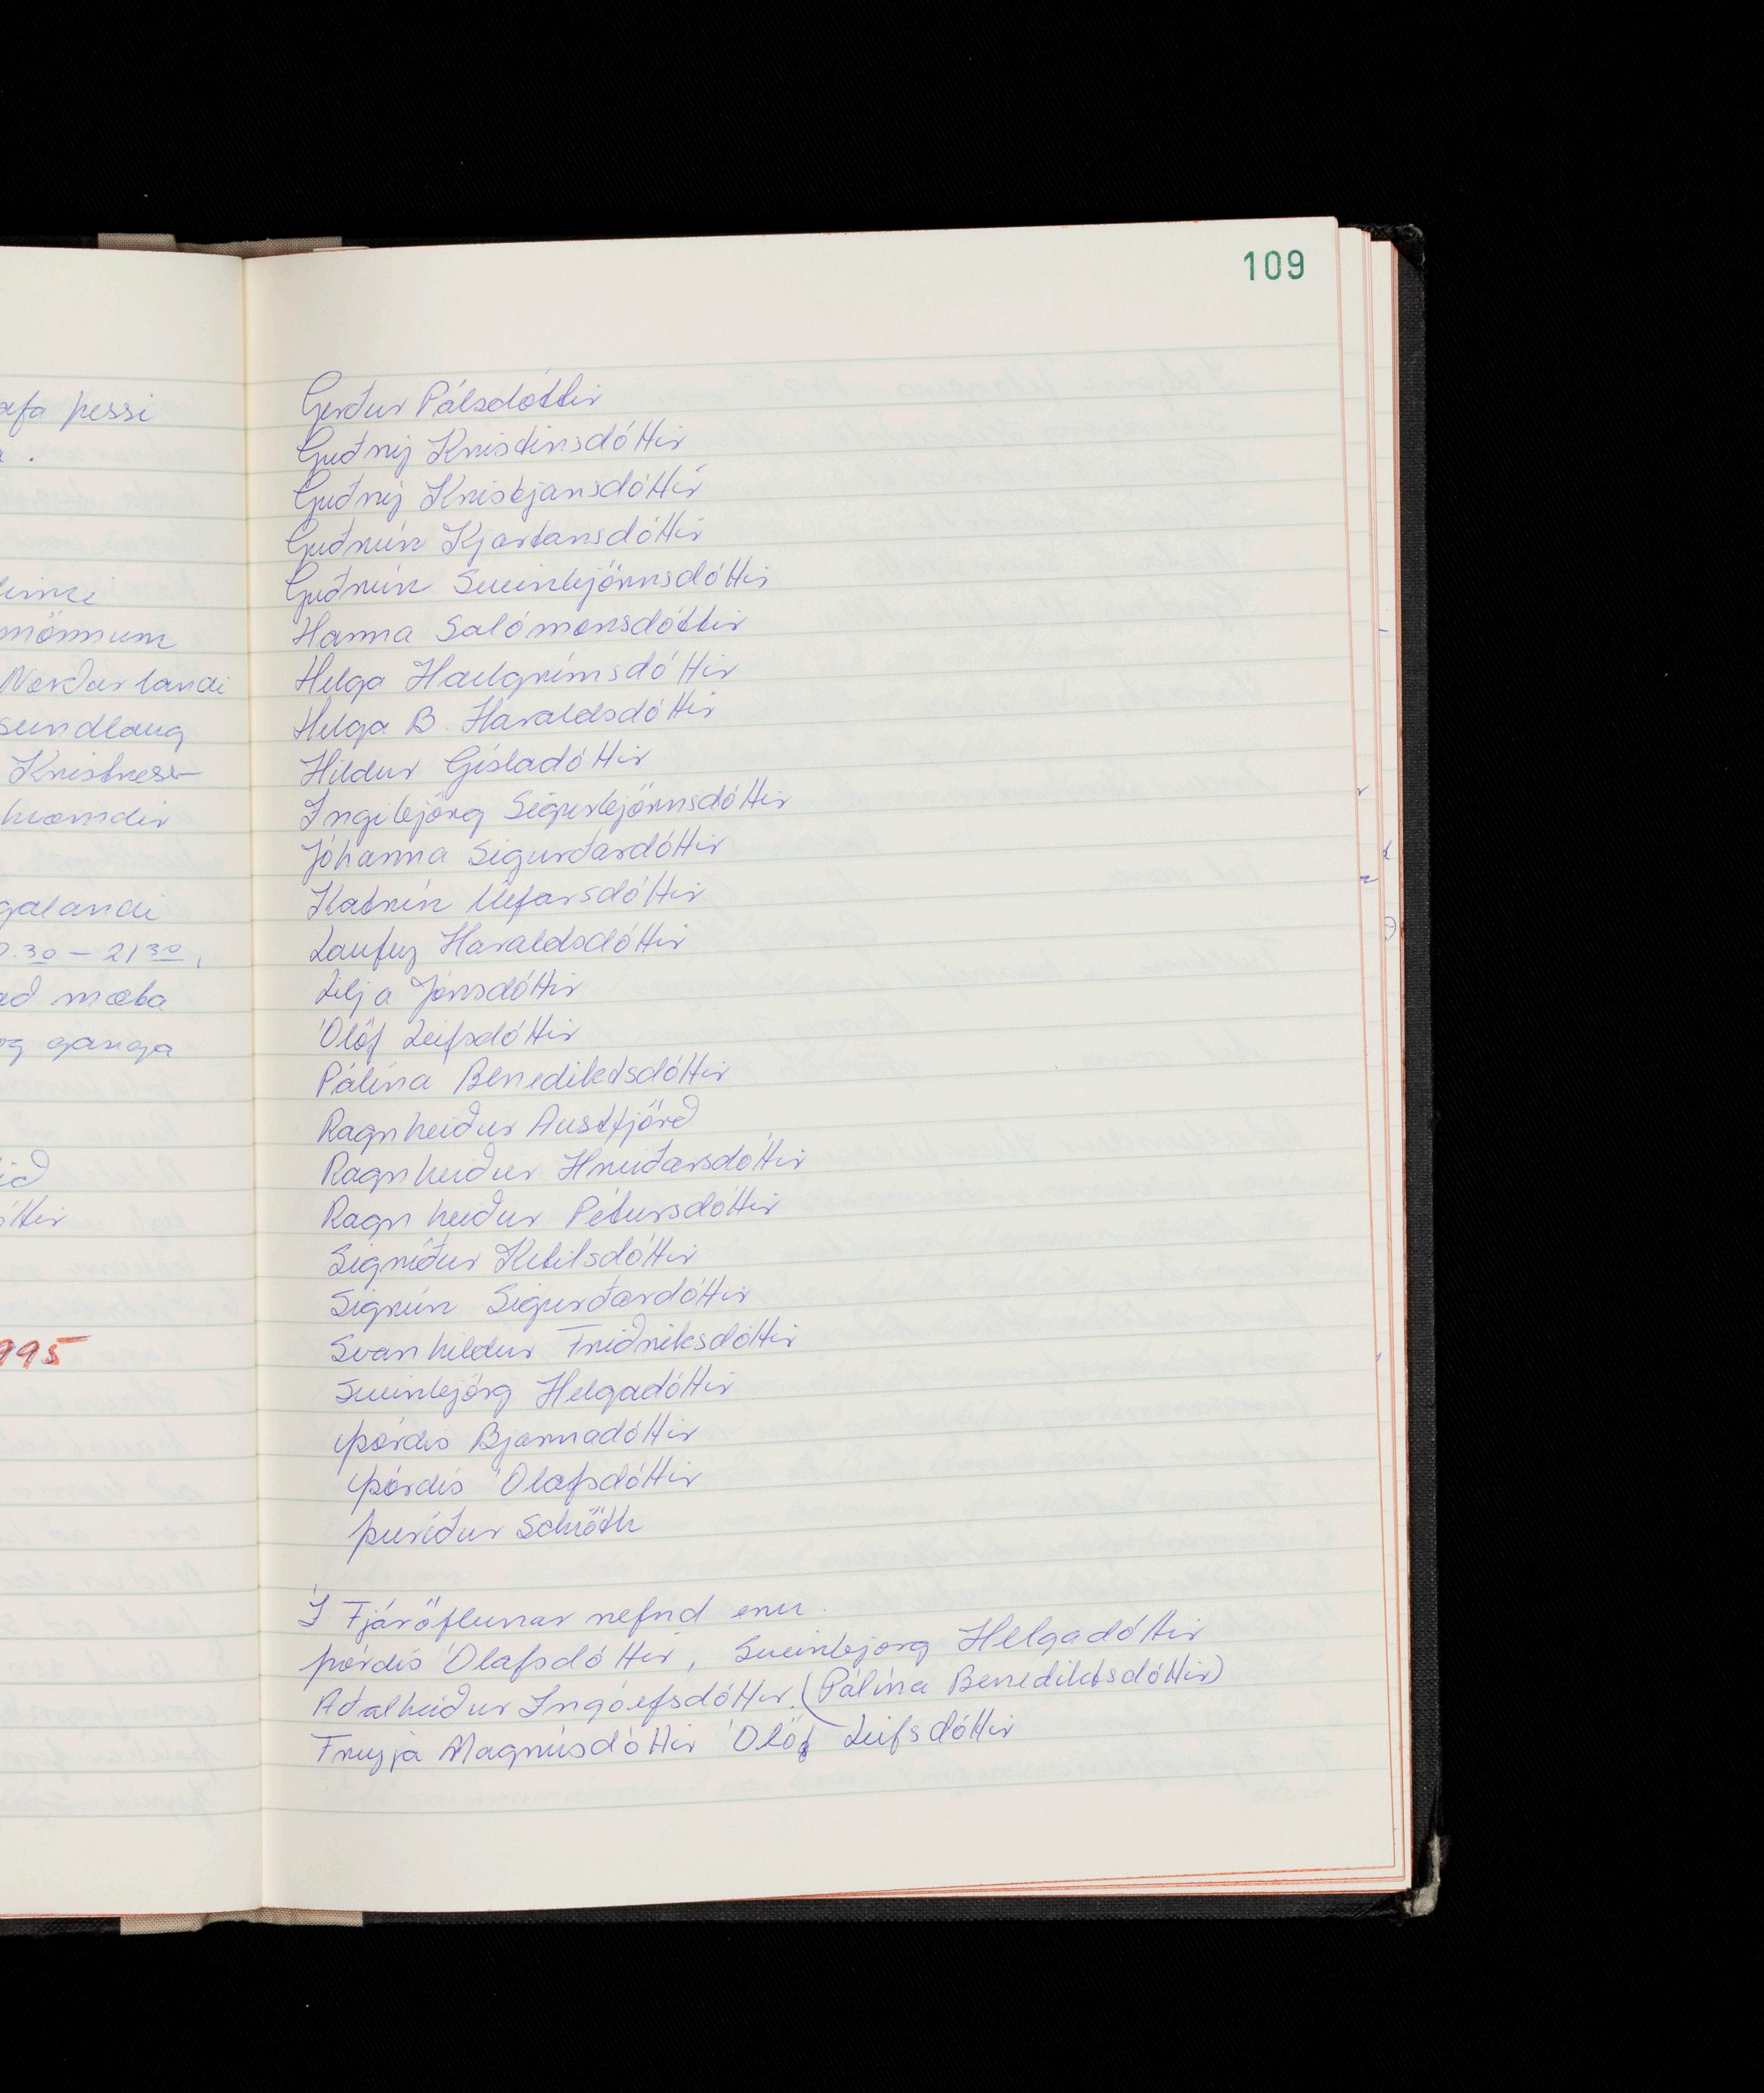 afa þessi
mönnum
Norðurlandi
sundlaug
Kristness-
galandi
.30 – 21 30,
að mæta
og ganga
995
109
Gerður Pálsdóttir
Guðný Kristinsdóttir
Guðný Kristjánsdóttir
Guðrún Kjartansdóttir
Guðrún Sveinbjörnsdóttir
Hanna Salómonsdóttir
Helga Hallgrímsdóttir
Helga B. Haraldsdóttir
Hildur Gísladóttir
Ingibjörg Sigurbjörnsdóttir
Jóhanna Sigurðardóttir
Katrín Úlfarsdóttir
Laufey Haraldsdóttir
Lilja Jónsdóttir
Ólöf Leifsdóttir
Pálína Benediktsdóttir
Ragnheiður Austfjörð
Ragnheiður Hreiðarsdóttir
Ragnheiður Pétursdóttir
Sigríður Ketilsdóttir
Sigrún Sigurðardóttir
Svanhildur Friðriksdóttir
Sveinbjörg Helgadóttir
Þórdís Bjarnadóttir
Þórdís Ólafsdóttir
Þuríður Schiöth
Í Fjáröflunar nefnd eru.
Þórdís Ólafsdóttir, Sveinbjörg Helgadóttir
Aðalheiður Ingólfsdóttir. (Pálína Benediktsdóttir)
Freyja Magnúsdóttir Ólöf Leifsdóttir